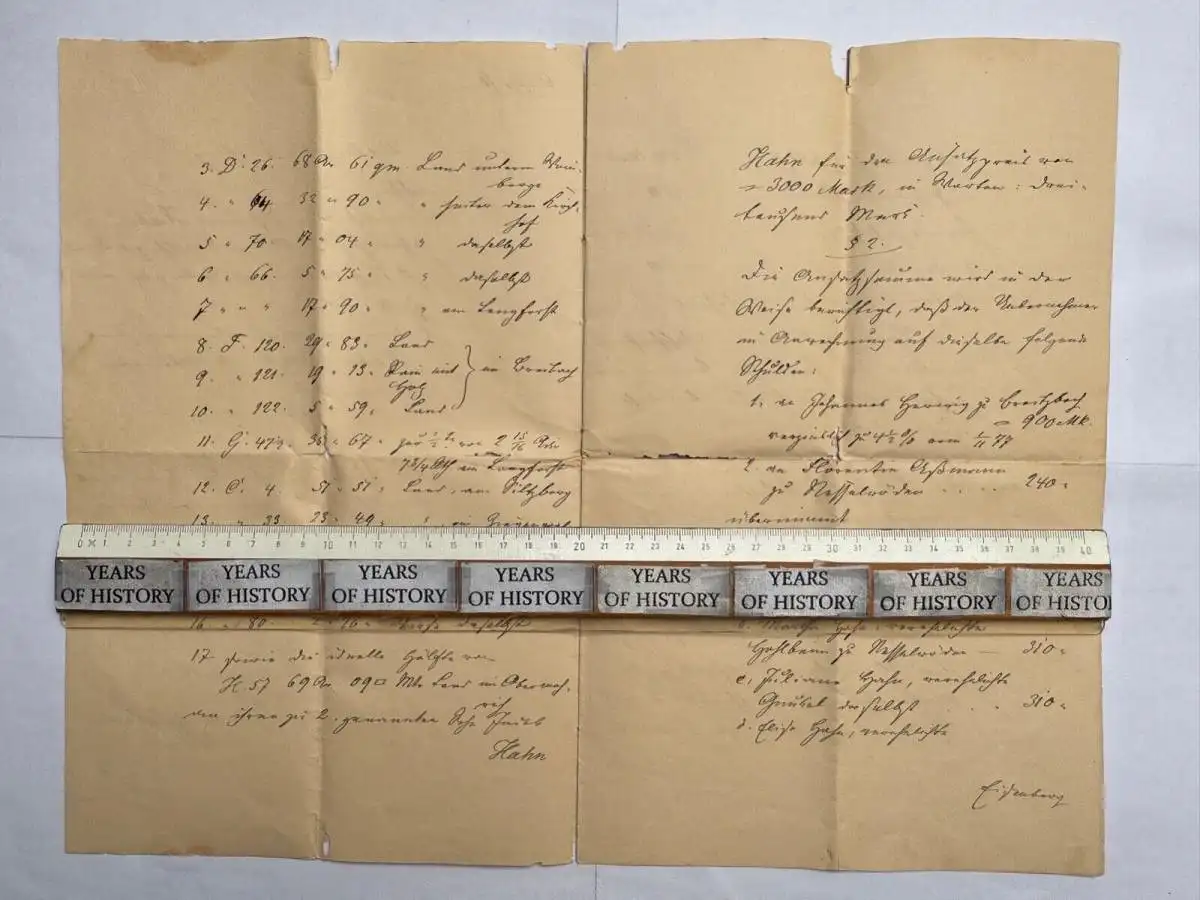 3. D. 26. 68 Ar 61 qm Land unterm Wein-
berge
4. " 64 32 " 90 " " hinter dem Kirch-
hof
5 " 70. 17 " 04 " " daselbst
6 " 66. 5 " 75 " " daselbst
7 " " " 17 " 90 " " am Lengforst
8. F. 120. 29 " 83 " Land
9. " 121. 19 " 13 " Rain mit
Holz
im Breitbach
10. " 122. 5 " 59 " Land
11. G. 67 "
12. C. 4. 51 " 51 " Land, am
13. " 33. 23 " 49 " " im
16. " 80. daselbst
17 sowie die ideelle Hälfte von
H. 57 69 Ar 09 □ Mtr Land im
den ihren zu 2. genannten Sohn
Hahn
Hahn für den Ansatzpreis von
= 3000 Mark, in Worten: Drei-
tausend Mark.
§ 2.
Die Ansatzsumme wird in der
Weise berichtigt, daß der Uebernehmer
in Anrechnung auf dieselbe folgende
Schulden:
1. an Johannes Herwig zu Breitzbach
= 900 Mk.
verzinslich zu 4½ % vom 1/11 77
2. an Florentin Aßmann
zu Nesselröden . . . . 240 "
übernimmt
b. Martha Hahn, verehelichte
Hohlbein zu Nesselröden — 310 "
c, Juliane Hahn, verehelichte
daselbst . . 310 "
d. Elise Hahn, verehelichte
Eisenberg
0 1 2 3 4 5 6 7 8 9 10 11 12 13 14 15 16 17 18 19 20 21 22 23 24 25 26 27 28 29 30 31 32 33 34 35 36 37 38 39 40
YEARS OF HISTORY YEARS OF HISTORY YEARS OF HISTORY YEARS OF HISTORY YEARS OF HISTORY YEARS OF HISTORY YEARS OF HISTORY YEARS OF HISTO